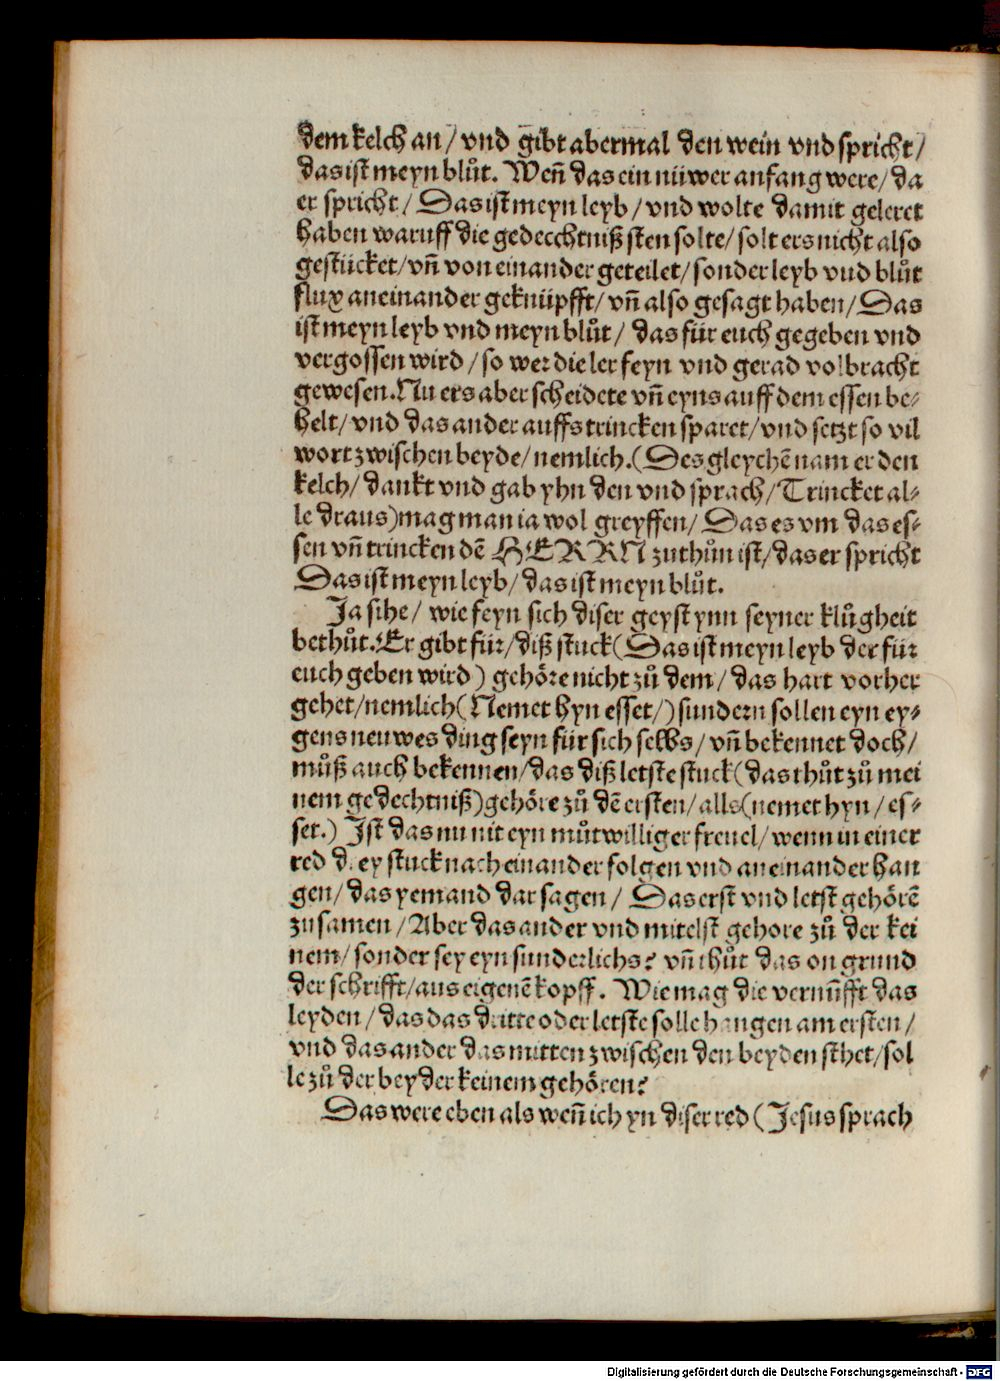 dem kelch an / vnd gibt abermal den wein vnd spricht /
das ist meyn blůt. Weñ das ein nüwer anfang were / da
er spricht / Das ist meyn leyb / vnd wolte damit geleret
haben waruff die gedecchtniß sten solte / solt ers nicht also
gestücket / vñ von einander geteilet / sonder leyb vnd blůt
flux aneinander geknüpfft / vñ also gesagt haben / Das
ist meyn leyb vnd meyn blůt / das für euch gegeben vnd
vergossen wird / so wer die ler feyn vnd gerad volbracht
gewesen. Nu ers aber scheidete vñ eyns auff dem essen be⸗
helt / vnd das ander auffs trincken sparet / vnd setzt so vil
wort zwischen beyde / nemlich. (Desgleychẽ nam er den
kelch / dankt vnd gab yhn den vnd sprach / Trincket al⸗
le draus) mag man ia wol greyffen / Das es vm das es⸗
sen vñ trincken dẽ HERRN zuthůn ist / das er spricht
Das ist meyn leyb / das ist meyn blůt.
Ja sihe / wie feyn sich diser geyst ynn seyner klůgheit
bethůt. Er gibt für / diß stuck (Das ist meyn leyb der für
euch geben wird) gehöre nicht zů dem / das hart vorher
gehet / nemlich (Nemet hyn esset /) sundern sollen eyn ey⸗
gens neuwes ding seyn für sich selbs / vñ bekennet doch /
můß auch bekennen / das diß letste stuck (das thůt zů mei
nem gedechtniß) gehöre zů dẽ ersten / alls (nemet hyn / es⸗
set.) Ist das nu nit eyn můtwilliger freuel / wenn in einer
red drey stuck nach einander folgen vnd aneinander han
gen / das yemand dar sagen / Das erst vnd letst gehörẽ
zusamen / Aber das ander vnd mitelst gehore zů der kei
nem / sonder sey eyn sunderlichs? vñ thůt das on grund
der schrifft / aus eigenẽ kopff. Wie mag die vernũfft das
leyden / das das dritte oder letste solle hangen am ersten /
vnd das ander das mitten zwischen den beyden sthet / sol
le zů der beyder keinem gehören?
Das were eben als weñ ich yn diser red (Jesus sprach
Digitalisierung gefördert durch die Deutsche Forschungsgemeinschaft - DFG